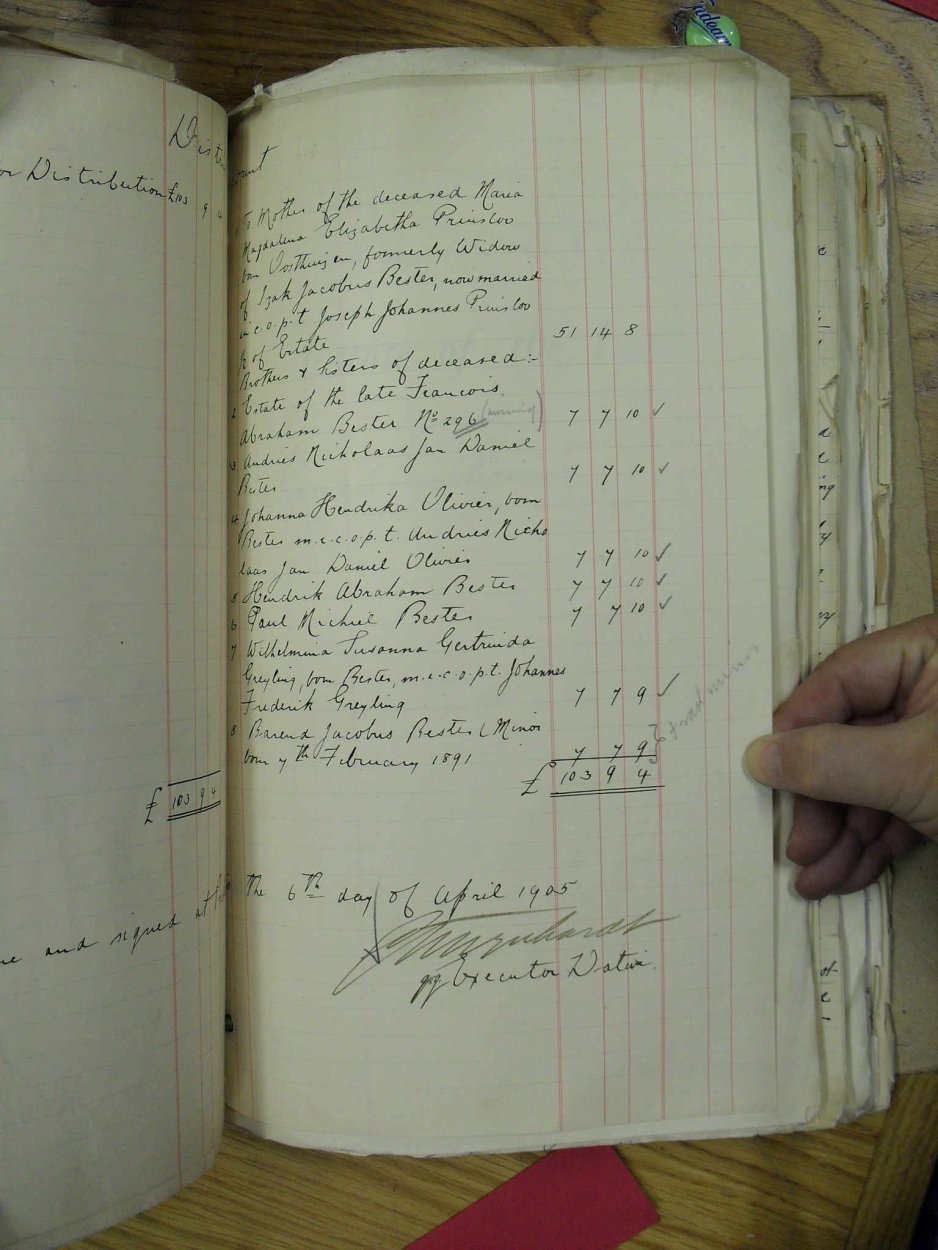 Distr
or Distribution £103 9 4
£ 103 9 4
and signed at
ount
1 To Mother of the deceased Maria
Magdalena Elizabetha Prinsloo
born Oosthuizen, formerly Widow
of Izak Jacobus Bester, now married
i.c.o.p.t Joseph Johannes Prinsloo
½ of Estate 51 14 8
Brothers & Sisters of deceased:-
2 Estate of the late Francois
Abraham Bester No 296 (missing) 7 7 10 ✓
3 Andries Nicholaas Jan Daniel
Bester 7 7 10 ✓
4 Johanna Hendrika Olivier, born
Bester m.i.c.o.p.t. Andries Nicho
laas Jan Daniel Olivier 7 7 10 ✓
5 Hendrik Abraham Bester 7 7 10 ✓
6 Paul Michiel Bester 7 7 10 ✓
7 Wilhelmina Susanna Gertruida
Greyling, born Bester, m.i.c.o.p.t. Johannes
Frederik Greyling 7 7 9 ✓
8 Barend Jacobus Bester (Minor
born 7th February 1891 7 7 9
£ 103 9 4
minor
the 6th day of April 1905
qq Executor Dative
Endearm